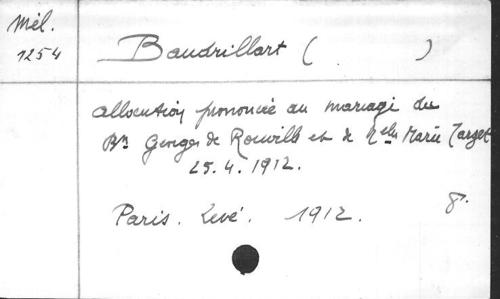 Mél.
1254
Baudrillart ( )
allocution prononcée au mariage du
Bon Georges de Rouvill et de Melle Marie Target
25.4.1912.
Paris. Levé. 1912. 8°.